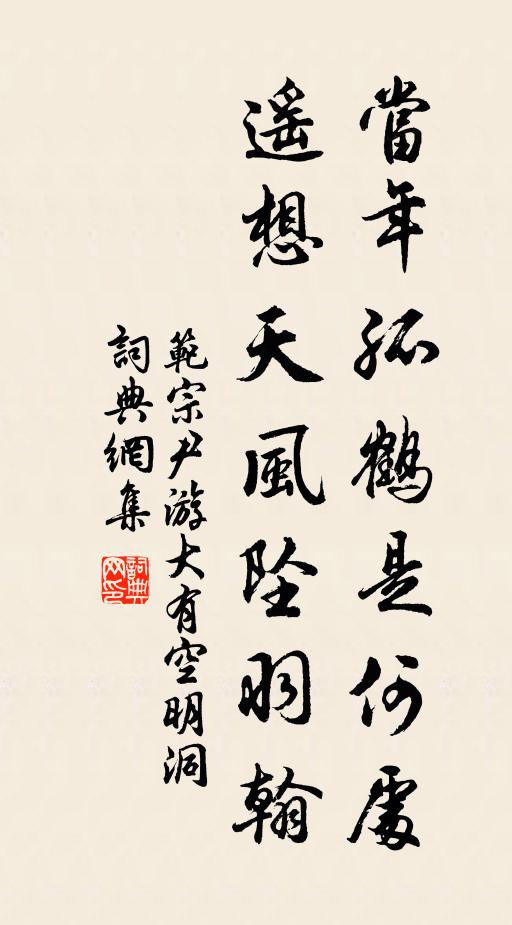 當年孤鶴是何處
遥想天風墜羽翰
範宗尹游大有空明洞
詞典網集
詞典网印